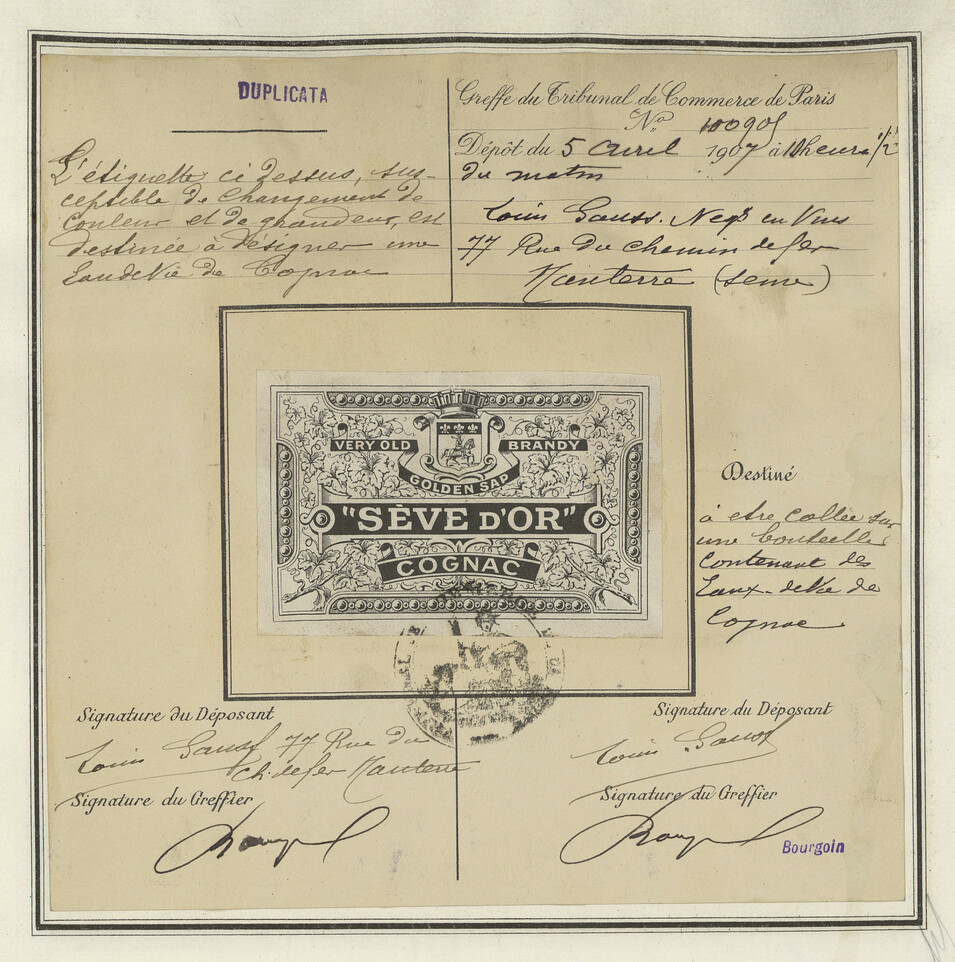 DUPLICATA
L'étiquette ci dessus, sus-
ceptible de changement de
couleur et de grandeur, est
destinée à désigner une
Eau de Vie de Cognac
Greffe du Tribunal de Commerce de Paris
No 100905
Dépôt du 5 avril 1907 à 10 heures 1/2
du matin
Louis Gauss. Negt en Vins
77 Rue du chemin de fer
Nanterre (Seine)
VERY OLD BRANDY
GOLDEN SAP
"SÈVE D'OR"
COGNAC
Destiné
à etre collée sur
une bouteille
contenant des
Eaux-de Vie de
Cognac
Signature du Déposant
Louis Gauss 77 Rue du
ch. de fer Nanterre
Signature du Greffier
Signature du Déposant
Louis Gauss
Signature du Greffier
Bourgoin